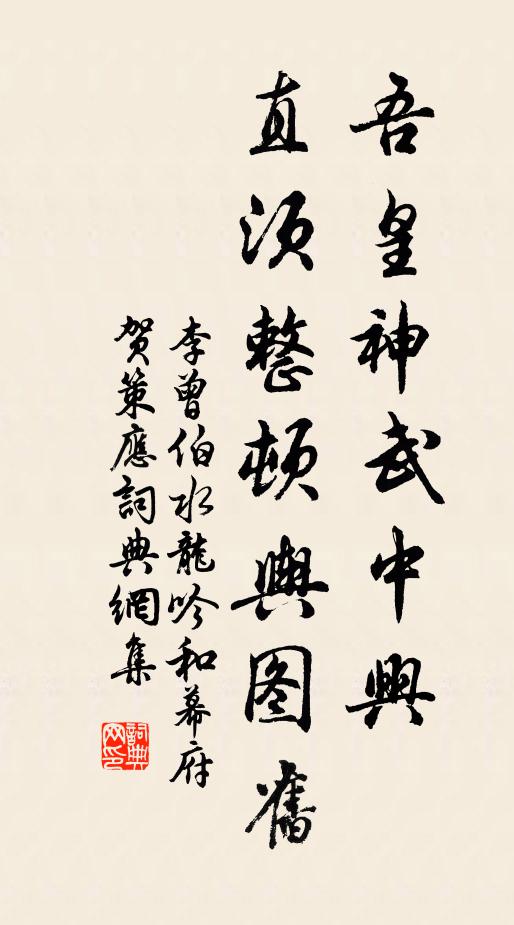 吾皇神武中興
直須整頓輿图舊
李曾伯水龍吟和幕府
贺策應詞典網集
詞典网印